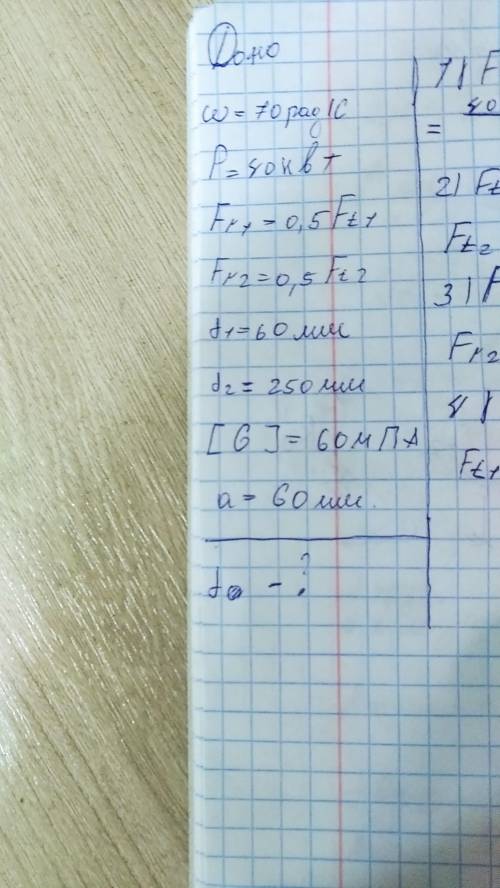 Дано
ω = 70 рад/с
P = 40 кВт
Fr1 = 0,5 Ft1
Fr2 = 0,5 Ft2
d1 = 60 мм
d2 = 250 мм
[б] = 60 мПА
a = 60 мм.
d - ?
1) F
40
=
2) Ft
Ft2
3) F
Fr2
4)
Ft1